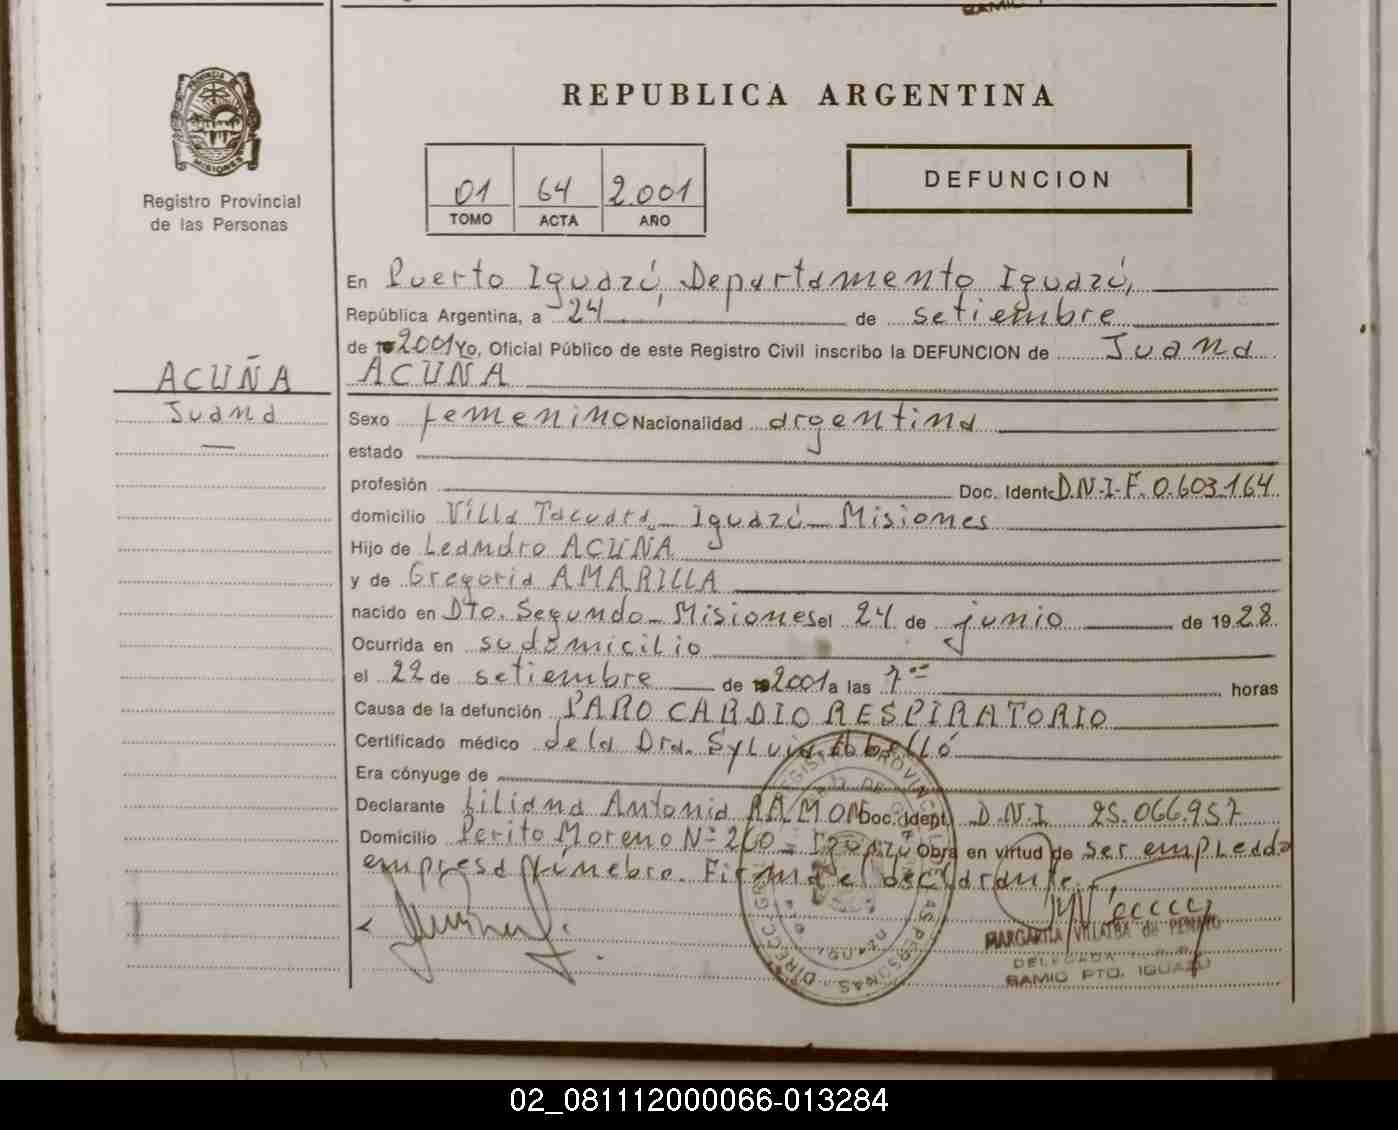 REPUBLICA ARGENTINA
PROVINCIA
MISIONES
Registro Provincial
de las Personas
01 64 2.001
TOMO ACTA AÑO
DEFUNCION
En Puerto Iguazú, Departamento Iguazú,
República Argentina, a 24 de setiembre
de 2001 Yo, Oficial Público de este Registro Civil inscribo la DEFUNCION de Juana
ACUÑA
ACUÑA
Juana
Sexo femenino Nacionalidad argentina
estado
profesión Doc. Ident. D.N.I.F. 0.603.164
domicilio Villa Tacuara - Iguazú - Misiones
Hijo de Leandro ACUÑA
y de Gregoria AMARILLA
nacido en Dto. Segundo - Misiones el 24 de junio de 1928.
Ocurrida en su domicilio
el 22 de setiembre de 2001 a las 7 horas
Causa de la defunción PARO CARDIO RESPIRATORIO
Certificado médico de la Dra. Sylvia Abelló
Era cónyuge de
Declarante Liliana Antonia RAMON Doc. Ident. D.N.I. 25.066.957
Domicilio Perito Moreno Nº 260 - Iguazú Obra en virtud de ser empleada
empresa fúnebre. Firma el declarante.
MARGARITA VILLALBA de
DELEGADA
RAMIO PTO. IGUAZU
02_081112000066-013284